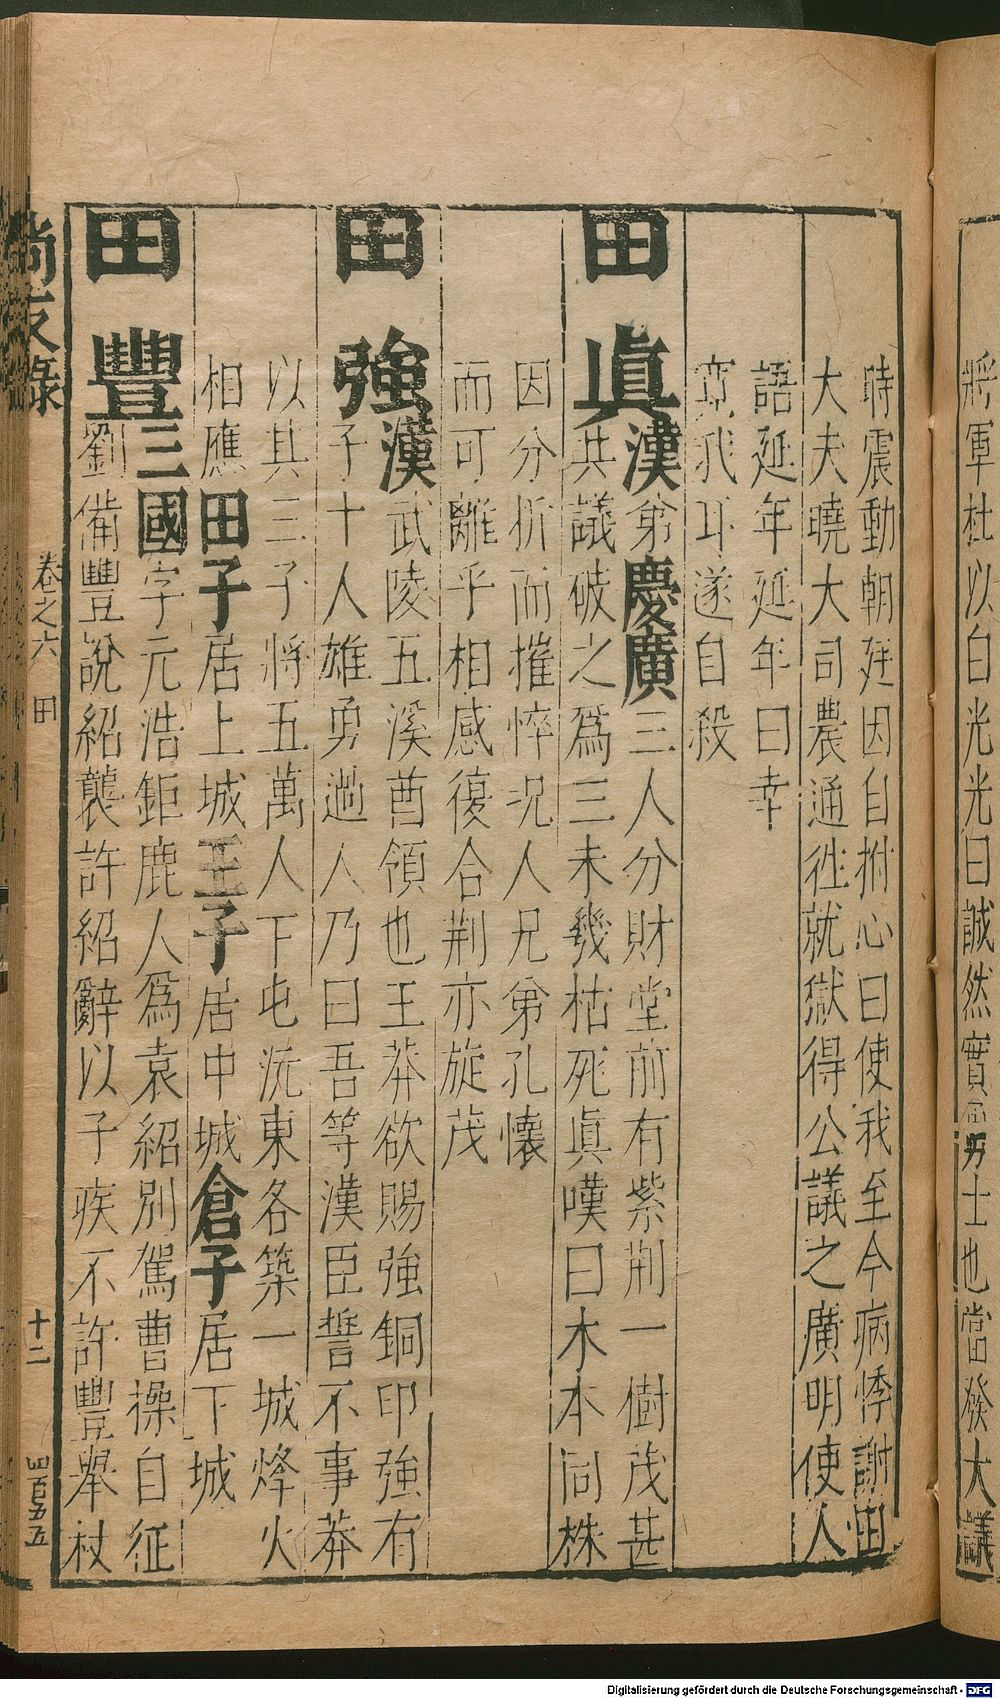 將軍杜以白光光曰誠然實勇士也當發大議
時震動朝廷因自拊心曰使我至今病悸謝田
大夫曉大司農通徃就獄得公議之廣明使人
語延年延年曰幸
我耳遂自殺
田眞漢第慶廣三人分財堂前有紫荆一樹茂甚
共議破之爲三未幾枯死眞嘆曰木本同株
因分析而摧悴况人兄弟孔懷
而可離乎相感復合荆亦旋茂
田強漢武陵五溪酋領也王莽欲賜強銅印強有
子十人雄勇過人乃曰吾等漢臣誓不事莽
以其三子將五萬人下屯沅東各築一城烽火
相應田子居上城王子居中城倉子居下城
田豐三國字元浩鉅鹿人爲袁紹別駕曹操自征
劉備豐說紹襲許紹辭以子疾不許豐舉杖
尚友錄 卷之六 田 十二 四百五五
Digitalisierung gefördert durch die Deutsche Forschungsgemeinschaft - DFG